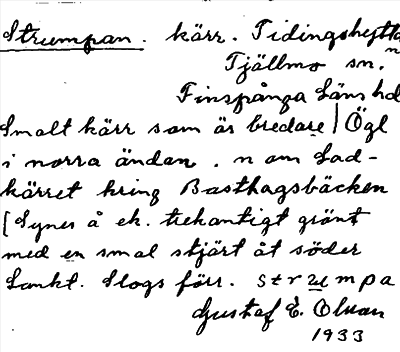 Strumpan. kärr. Tidingshytta
Tjällmo sn. n
Finspånga Läns hd
Smalt kärr som är bredare | Ögl
i norra ändan. n om Lad-
kärret kring Basthagsbäcken
[Synes å ek. trekantigt grönt
med en smal stjärt åt söder
Sankt. Slogs förr. strumpa
Gustaf E. Olsson
1933